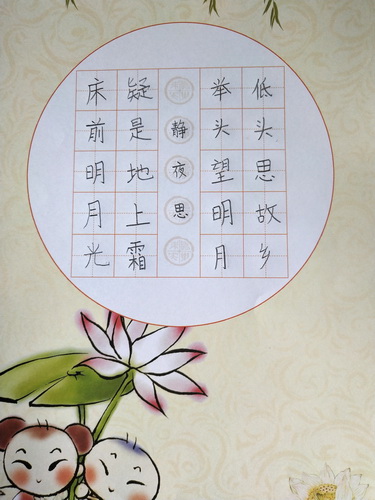 床前明月光
疑是地上霜
静夜思
举头望明月
低头思故乡